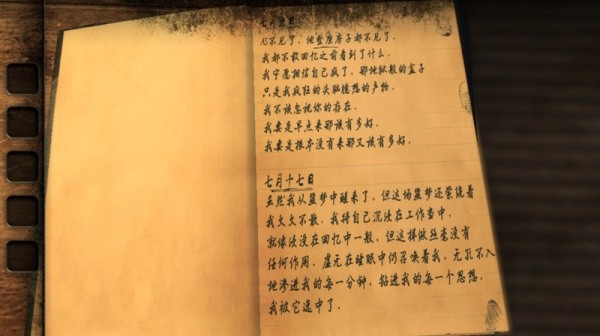 七月日
不见了,他整座房子都不见了.
我都不敢回忆之前看到了什么.
我宁愿相信自己疯了,那地狱般的盒子
只是我疯狂的头脑臆想的产物.
我不该忽视你的存在.
我要是早点来那该有多好.
我要是根本没有来那又该有多好.
七月十七日
虽然我从噩梦中醒来了,但这场噩梦还萦绕着
我久久不散.我将自己沉浸在工作当中,
就像沉没在回忆中一般,但这样做丝毫没有
任何作用.虚无在睡眠中仍召唤着我,无孔不入
地渗进我的每一分钟,钻进我的每一个思想.
我被它选中了.